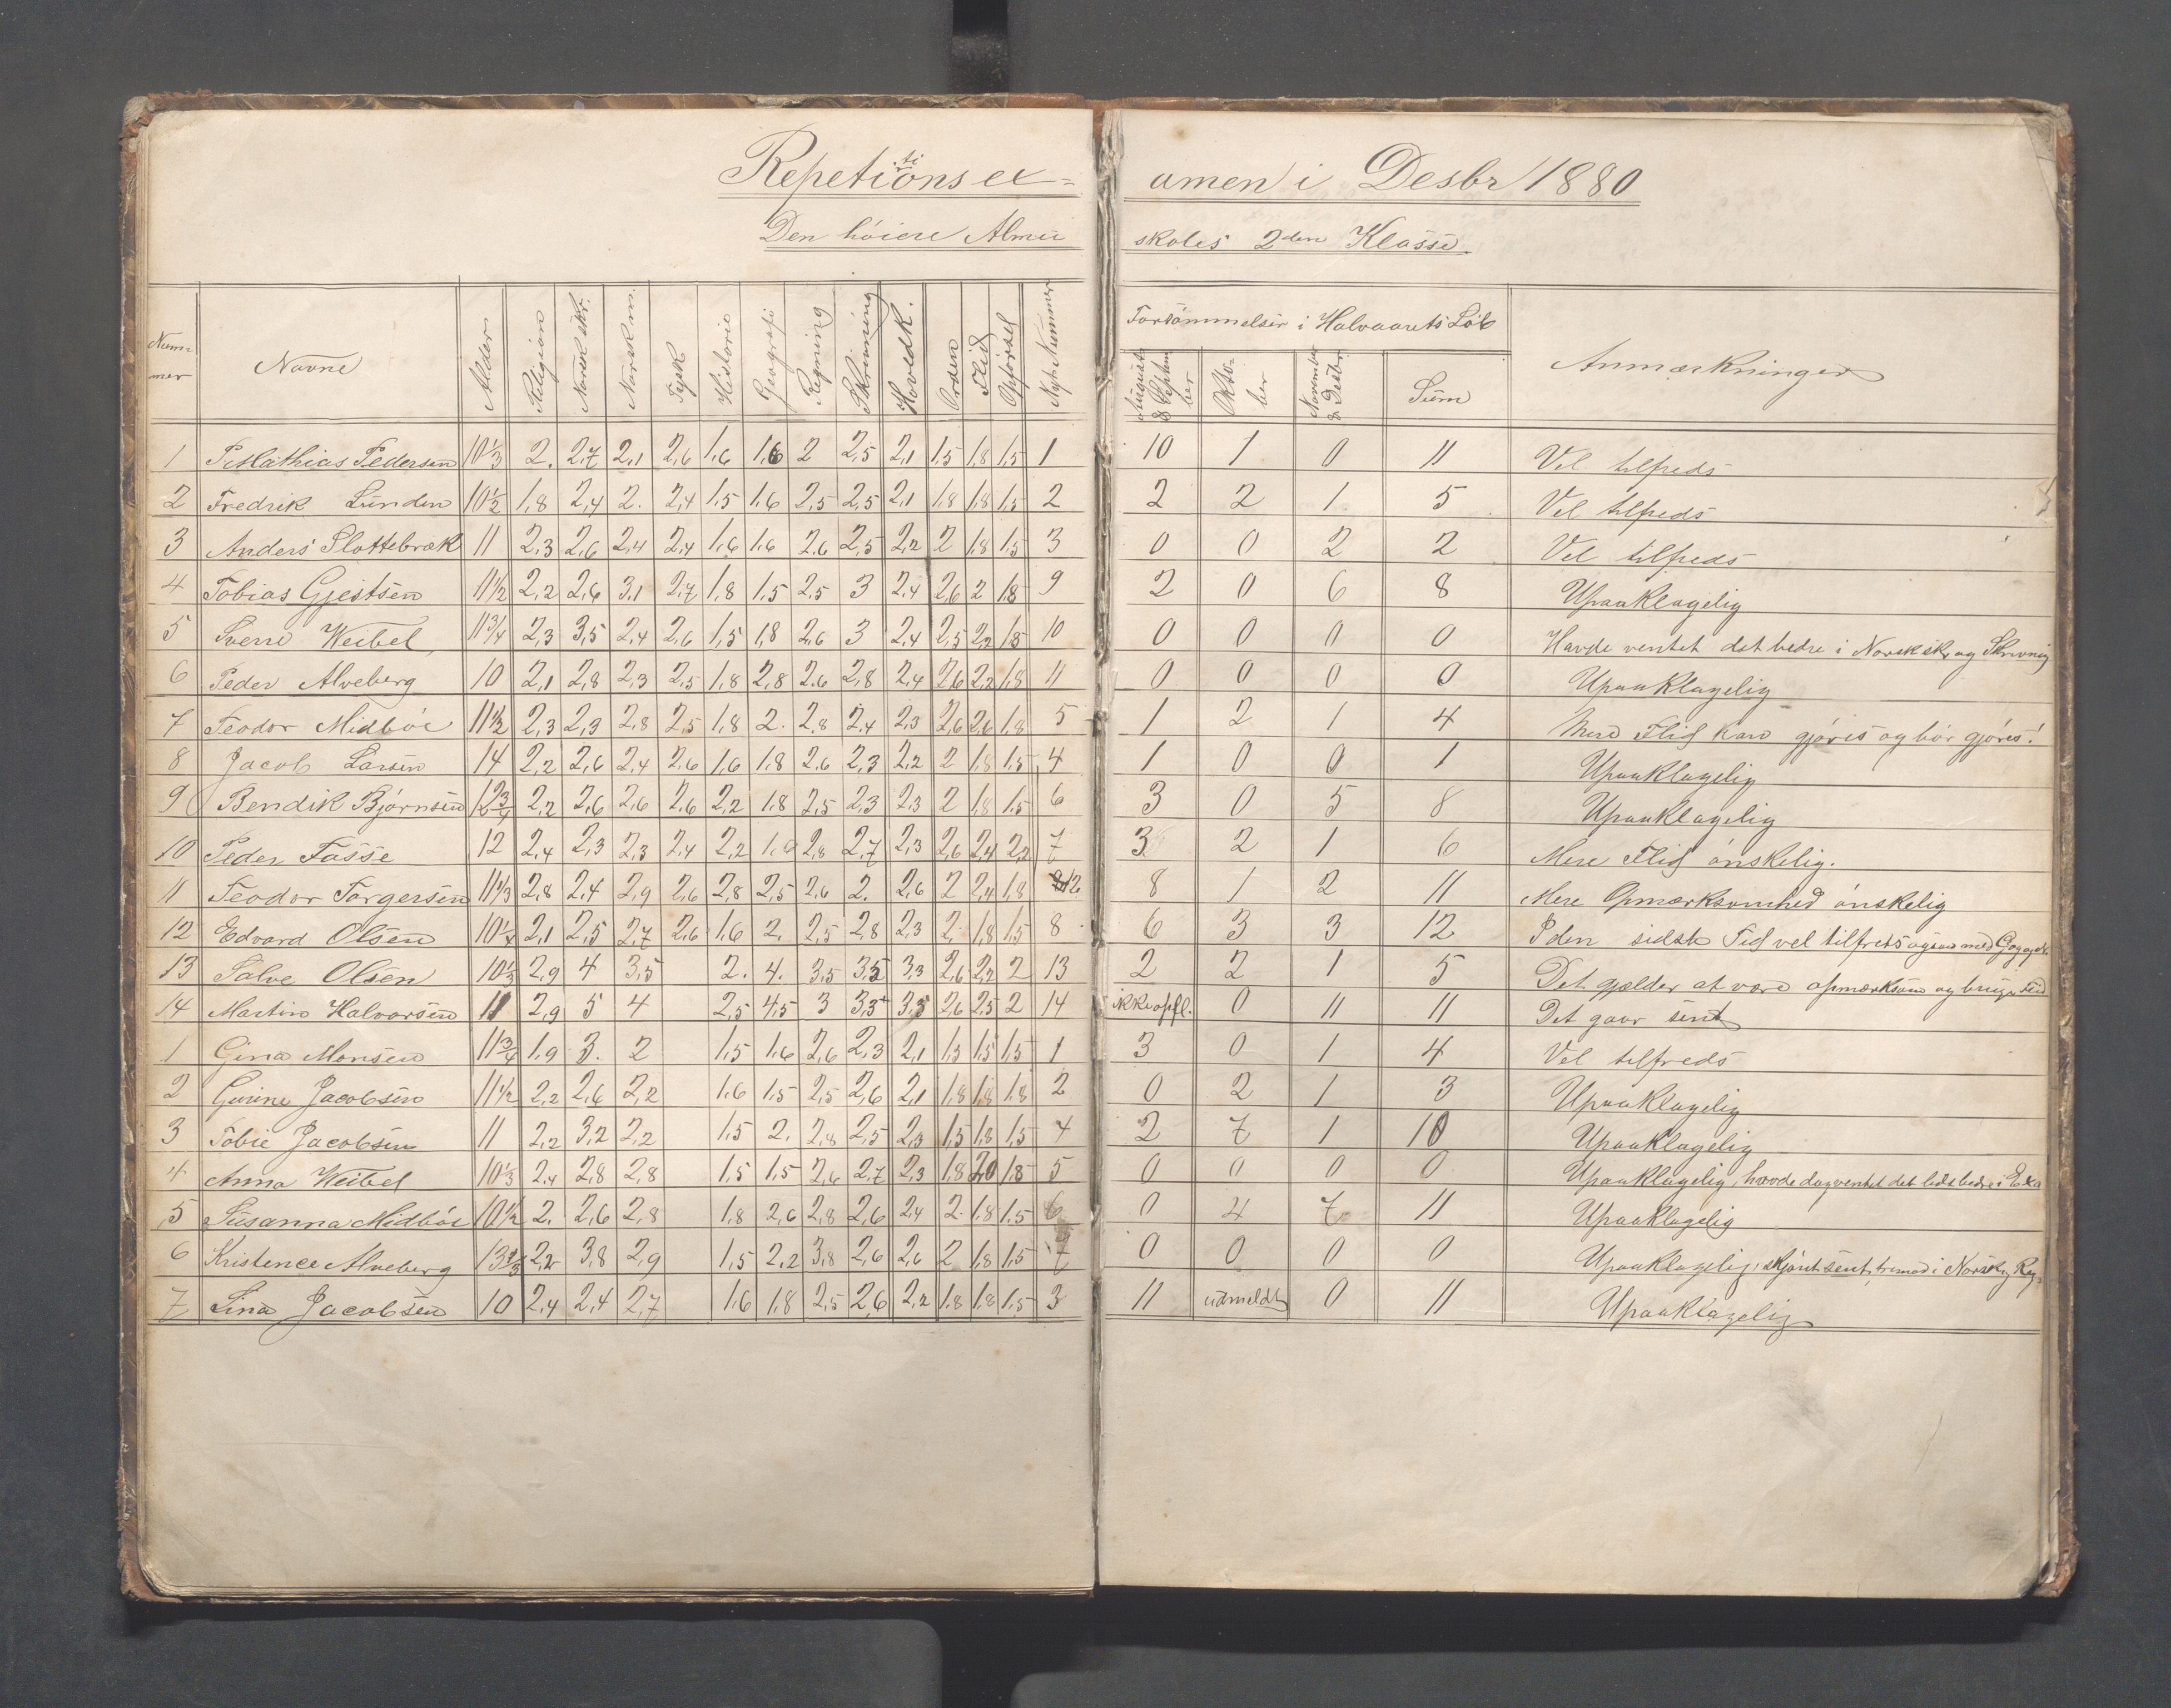 Repetitions ex= amen i Desbr 1880
Den høiere Almu skoles 2den Klasse
Num= mer | Navne | Alder | Religion | Norsk skr. | Norsk m. | Tysk | Historie | Geografi | Regning | Skrivning | Hovedk. | Orden | Flid | Opførsel | Nyt Nummer | Forsømmelser i Halvaarets Løb | August & Septem ber | Okto- ber | November & Desbr. | Sum | Anmærkninger
1 Mathias Pedersen 10 1/3 2. 2,7 2,1 2,6 1,6 1,6 2 2,5 2,1 1,5 1,8 1,5 1 10 1 0 11 Vel tilfreds
2 Fredrik Lunden 10 1/2 1,8 2,4 2. 2,4 1,5 1,6 2,5 2,5 2,1 1,8 1,8 1,5 2 2 2 1 5 Vel tilfreds
3 Anders Slottebræk 11 2,3 2,6 2,4 2,4 1,6 1,6 2,6 2,5 2,2 2 1,8 1,5 3 0 0 2 2 Vel tilfreds
4 Tobias Gjestsen 11 1/2 2,2 2,6 3,1 2,7 1,8 1,5 2,5 3 2,4 2,6 2 1,8 9 2 0 6 8 Upaaklagelig
5 Sverre Weibel 11 3/4 2,3 3,5 2,4 2,6 1,5 1,8 2,6 3 2,4 2,5 2,2 1,8 10 0 0 0 0 Havde ventet det bedre i Norsk sk. og Skrivnig
6 Peder Alveberg 10 2,1 2,8 2,3 2,5 1,8 2,8 2,6 2,8 2,4 2,6 2,2 1,8 11 0 0 0 0 Upaaklagelig
7 Teodor Midbøe 11 1/2 2,3 2,3 2,8 2,5 1,8 2. 2,8 2,4 2,3 2,6 2,6 1,8 5 1 2 1 4 Mere Flid kan gjøres og bør gjøres!
8 Jacob Larsen 14 2,2 2,6 2,4 2,6 1,6 1,8 2,6 2,3 2,2 2 1,8 1,5 4 1 0 0 1 Upaaklagelig
9 Bendik Bjørnsen 12 3/4 2,2 2,6 2,6 2,6 2,2 1,8 2,5 2,3 2,3 2 1,8 1,5 6 3 0 5 8 Upaaklagelig
10 Peder Fasse 12 2,4 2,3 2,3 2,4 2,2 2,8 2,7 2,3 2,6 2,4 2,2 7 3 2 1 6 Mere Flid ønskelig.
11 Teodor Torgersen 11 1/3 2,8 2,4 2,9 2,6 2,8 2,5 2,6 2. 2,6 2 2,4 1,8 12 8 1 2 11 Mere Opmærksomhed ønskelig
12 Edvard Olsen 10 1/4 2,1 2,5 2,7 2,6 1,6 2. 2,5 2,8 2,3 2. 1,8 1,5 8 6 3 3 12 I den sidste Tid vel tilfreds ogsaa med
13 Salve Olsen 10 1/3 2,9 4 3,5 2. 4. 3,5 3,5 3,3 2,6 2,2 2 13 2 2 1 5 Det gjælder at være opmærksom og bruge Tid
14 Martin Halvorsen 11 2,9 5 4 2,5 4,5 3 3,3 3,5 2,6 2,5 2 14 ikke opfl. 0 11 11 Det gaar sent
1 Gina Monsen 11 3/4 1,9 3. 2 1,5 1,6 2,6 2,3 2,1 1,5 1,5 1,5 1 3 0 1 4 Vel tilfreds
2 Gurine Jacobsen 11 1/2 2,2 2,6 2,2 1,6 1,5 2,5 2,6 2,1 1,8 1,8 1,8 2 0 2 1 3 Upaaklagelig
3 Tobie Jacobsen 11 2,2 3,2 2,2 1,5 2. 2,8 2,5 2,3 1,5 1,8 1,5 4 2 7 1 10 Upaaklagelig
4 Anna Weibel 10 1/3 2,4 2,8 2,8 1,5 1,5 2,6 2,7 2,3 1,8 2,0 1,8 5 0 0 0 0 Upaaklagelig, havde dog ventet det lidt bedre i Exa
5 Susanna Midbøe 10 1/2 2. 2,6 2,8 1,8 2,6 2,8 2,6 2,4 2. 1,8 1,5 6 0 4 7 11 Upaaklagelig
6 Kristence Alveberg 13 2/3 2,2 3,8 2,9 1,5 2,2 3,8 2,6 2,6 2 1,8 1,5 7 0 0 0 0 Upaaklagelig, skjønt sent fremad i Norsk og Reg.
7 Lina Jacobsen 10 2,4 2,4 2,7 1,6 1,8 2,5 2,6 2,2 1,8 1,8 1,5 3 11 udmeldt 0 11 Upaaklagelig